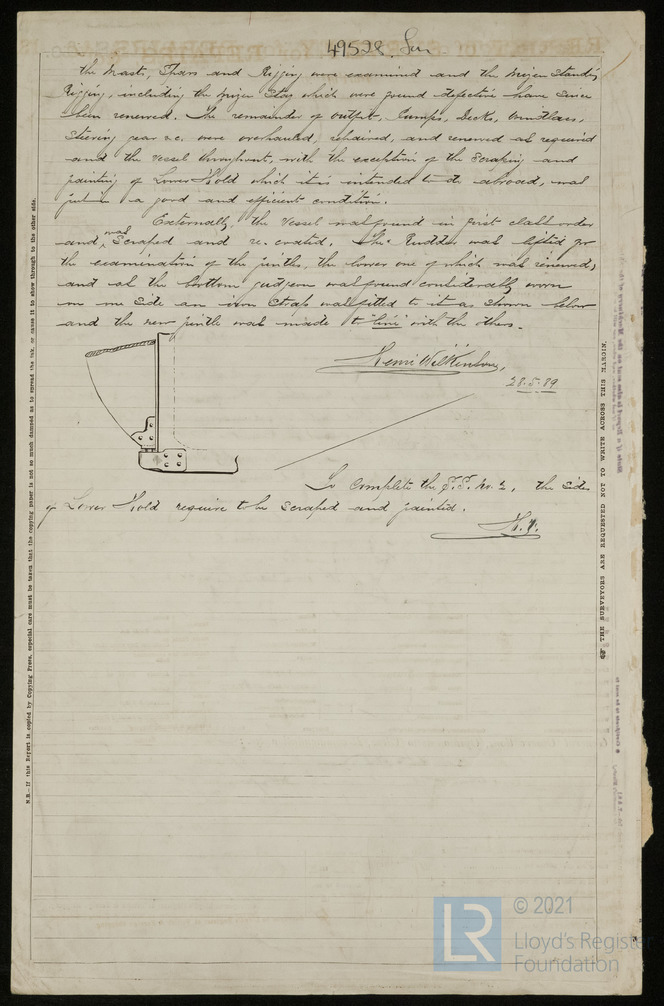 49528
The Masts, Spars and Rigging were examined and the Mizen Standing
Rigging, including the Mizen Stay which were found defective have since
been renewed. The remainder of outfit, Pumps, Decks, Windlass,
Steering gear &c. were overhauled, repaired, and renewed as required
and the vessel throughout, with the exception of the Scraping and
painting of Lower Hold which it is intended to do abroad, was
put in a good and efficient condition.
Externally, the vessel was found in first class order
and was Scraped and re-coated. The Rudder was lifted for
the examination of the pintles, the lower one of which was renewed,
and as the bottom gudgeon was found considerably worn
on one Side an iron Strap was fitted to it as shown below
and the new pintle was made to "line" with the others.
Henri Wilkinson,
28.5.89
To Complete the S.S. No. 2, the Sides
of Lower Hold require to be Scraped and painted.
H.W.
N.B.—If this Report is copied by Copying Press, especial care must be taken that the copying paper is not so much damped as to spread the ink, or cause it to show through to the other side.
THE SURVEYORS ARE REQUESTED NOT TO WRITE ACROSS THIS MARGIN.
LR
© 2021
Lloyd's Register
Foundation